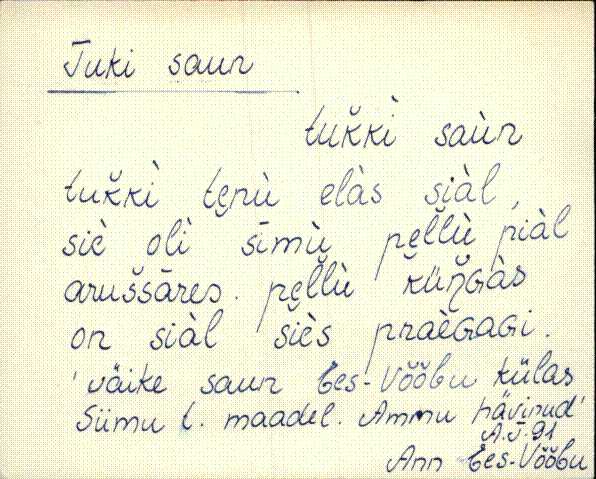 Tuki saun
tuk̆kì saùn
tuk̆kì te̮nù elàs siàl,
siè olì sīmù pe̮l̆lù piàl
arus̆sāres. pe̮l̆lù kün̆Gàs
on siàl siès praèGaGi.
'väike saun Ees-Võõbu külas
Siimu t. maadel. Ammu hävinud'
A.J. 91
Ann Ees-Võõbu